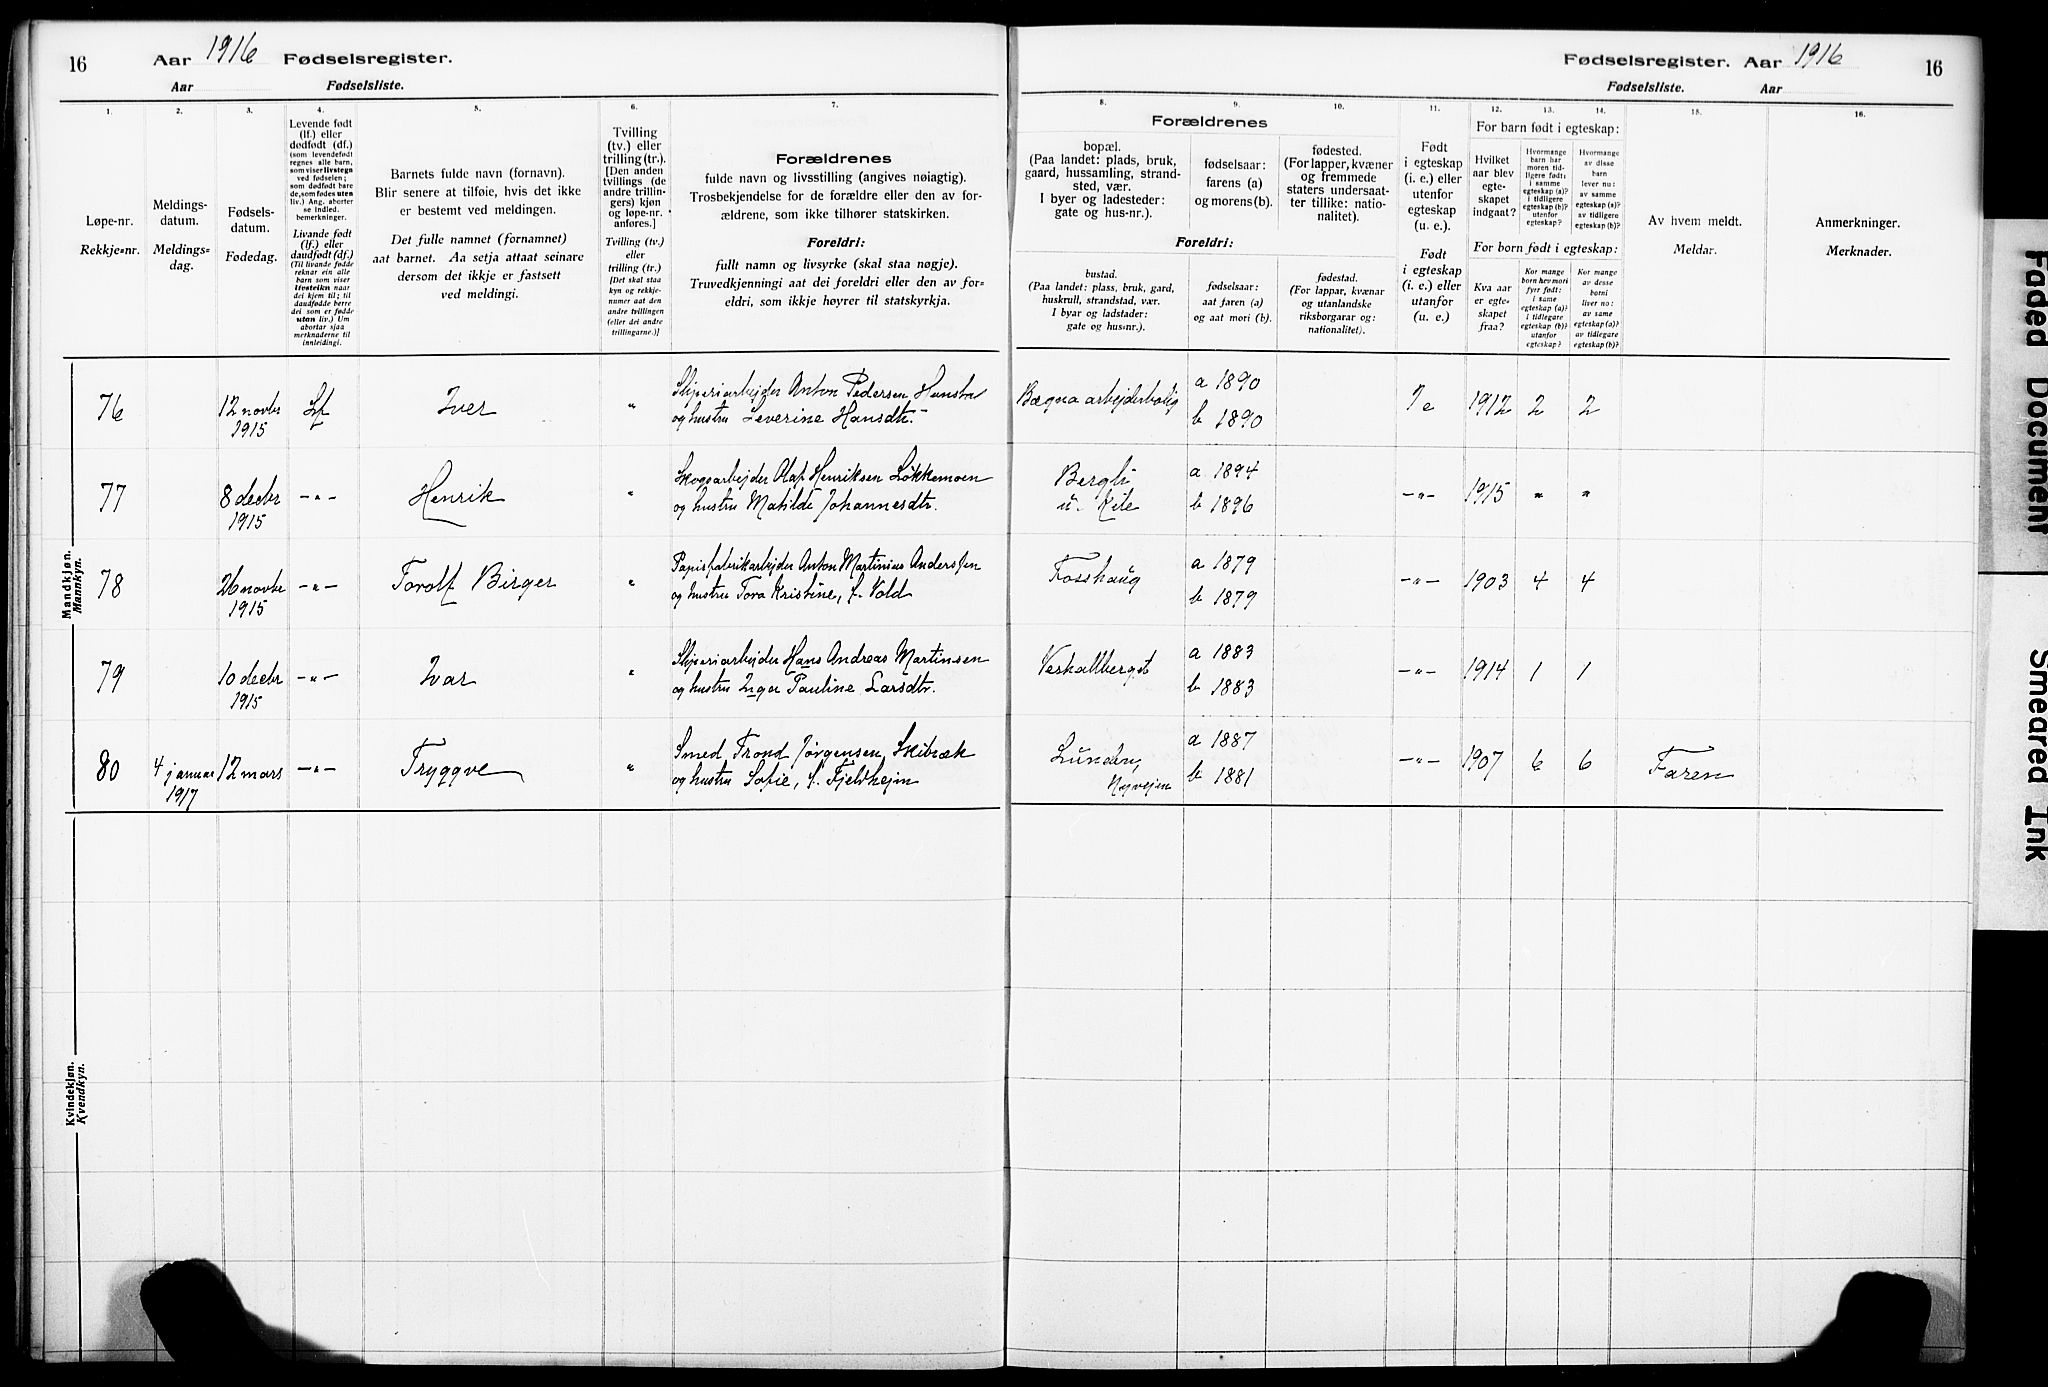 16
Aar 1916 Fødselsregister.
Aar Fødselsliste.
Fødselsregister. Aar 1916
16
Fødselsliste. Aar
1.
Løpe-nr.
Rekkje=nr.
2.
Meldings-
datum.
Meldings=
dag.
3.
Fødsels-
datum.
Fødedag.
4.
Levende født
(lf.) eller
dødfødt (df.)
(som levendefødt
regnes alle barn,
som viser livstegn
ved fødselen;
som dødfødt bare
de, som fødes uten
liv.) Ang. aborter
se indled.
bemerkninger.
Livande født
(lf.) eller
daudfødt (df.)
(Til livande fødde
reknar ein alle
born som viser
livsteikn naar
dei kjem til; til
daudfødde berre
dei som er fødde
utan liv.) Um
abortar sjaa
merknaderne til
innleidingi.
5.
Barnets fulde navn (fornavn).
Blir senere at tilføie, hvis det ikke
er bestemt ved meldingen.
Det fulle namnet (fornamnet)
aat barnet. Aa setja attaat seinare
dersom det ikkje er fastsett
ved meldingi.
6.
Tvilling
(tv.) eller
trilling (tr.).
[Den anden
tvillings (de
andre trillin-
gers) kjøn
og løpe-nr.
anføres.]
Tvilling (tv.)
eller
trilling (tr.)
[Det skal staa
kyn og rekkje-
numer aat den
andre tvillingen
(eller dei andre
trillingarne.)]
7.
Forældrenes
fulde navn og livsstilling (angives nøiagtig).
Trosbekjendelse for de forældre eller den av for-
ældrene, som ikke tilhører statskirken.
Foreldri:
fullt namn og livsyrke (skal staa nøgje).
Truvedkjenningi aat dei foreldri eller den av for=
eldri, som ikkje høyrer til statskyrkja.
8.
9.
10.
Forældrenes
bopæl.
(Paa landet: plads, bruk,
gaard, hussamling, strand-
sted, vær.
I byer og ladesteder:
gate og hus-nr.).
fødselsaar:
farens (a)
og morens (b).
fødested.
(For lapper, kvæner
og fremmede
staters undersaat-
ter tillike: natio-
nalitet).
Foreldri:
bustad.
(Paa landet: plass, bruk, gard,
huskrull, strandstad, vær.
I byar og ladstader:
gate og hus=nr.).
fødselsaar:
aat faren (a)
og aat mori (b).
fødestad.
(For lappar, kvænar
og utanlandske
riksborgarar og:
nationalitet).
11.
Født
i egteskap
(i. e.) eller
utenfor
egteskap
(u. e.).
Født
i egteskap
(i. e.) eller
utanfor
(u. e.)
12.
13.
14.
For barn født i egteskap:
Hvilket
aar blev
egte-
skapet
indgaat?
Hvormange
barn har
moren tid-
ligere født:
i samme
egteskap (a)?
i tidligere
egteskap (b)?
utenfor
egteskap?
Hvormange
av disse
barn
lever nu:
av samme
egteskap (a)?
av tidligere
egteskap (b)?
For born født i egteskap:
Kva aar
er egte-
skapet
fraa?
Kor mange
born hev mori
fyrr født:
i same
egteskap (a)?
i tidlegare
egteskap (b)?
utanfor
egteskap?
Kor mange
av desse
borni
liver no:
av same
egteskap (a)?
av tidlegare
egteskap (b)?
15.
Av hvem meldt.
Meldar.
16.
Anmerkninger.
Merknader.
Mandkjøn.
Mannkyn.
76 12 novbr 1915 Lf Iver " Sliperiarbejder Anton Pedersen Hunstad
og hustru Severine Hansdtr. Bægna arbejderbolig a 1890 b 1890 I e 1912 2 2
77 8 decbr 1915 -"- Henrik " Skogsarbejder Olaf Henriksen Løkkemoen
og hustru Matilde Johannesdtr. Bergli
u. Kile a 1894 b 1896 -"- 1915 " "
78 26 novbr 1915 -"- Torolf Birger " Papirfabrikarbejder Anton Martinius Anderssen
og hustru Tora Kristine, f. Vold Fosshaug a 1879 b 1879 -"- 1903 4 4
79 10 decbr 1915 -"- Ivar " Sliperiarbejder Hans Andreas Martinsen
og hustru Inger Pauline Larsdtr. a 1883 b 1883 -"- 1914 1 1
80 4 januar 1917 12 mars -"- Tryggve " Smed Trond Jørgensen Skibræk
og hustru Sofie, f. Fjeldhejm Lunden,
Nyvejen a 1887 b 1881 -"- 1907 6 6 Faren
Kvindekjøn.
Kvendkyn.
Faded Document
Smeared Ink